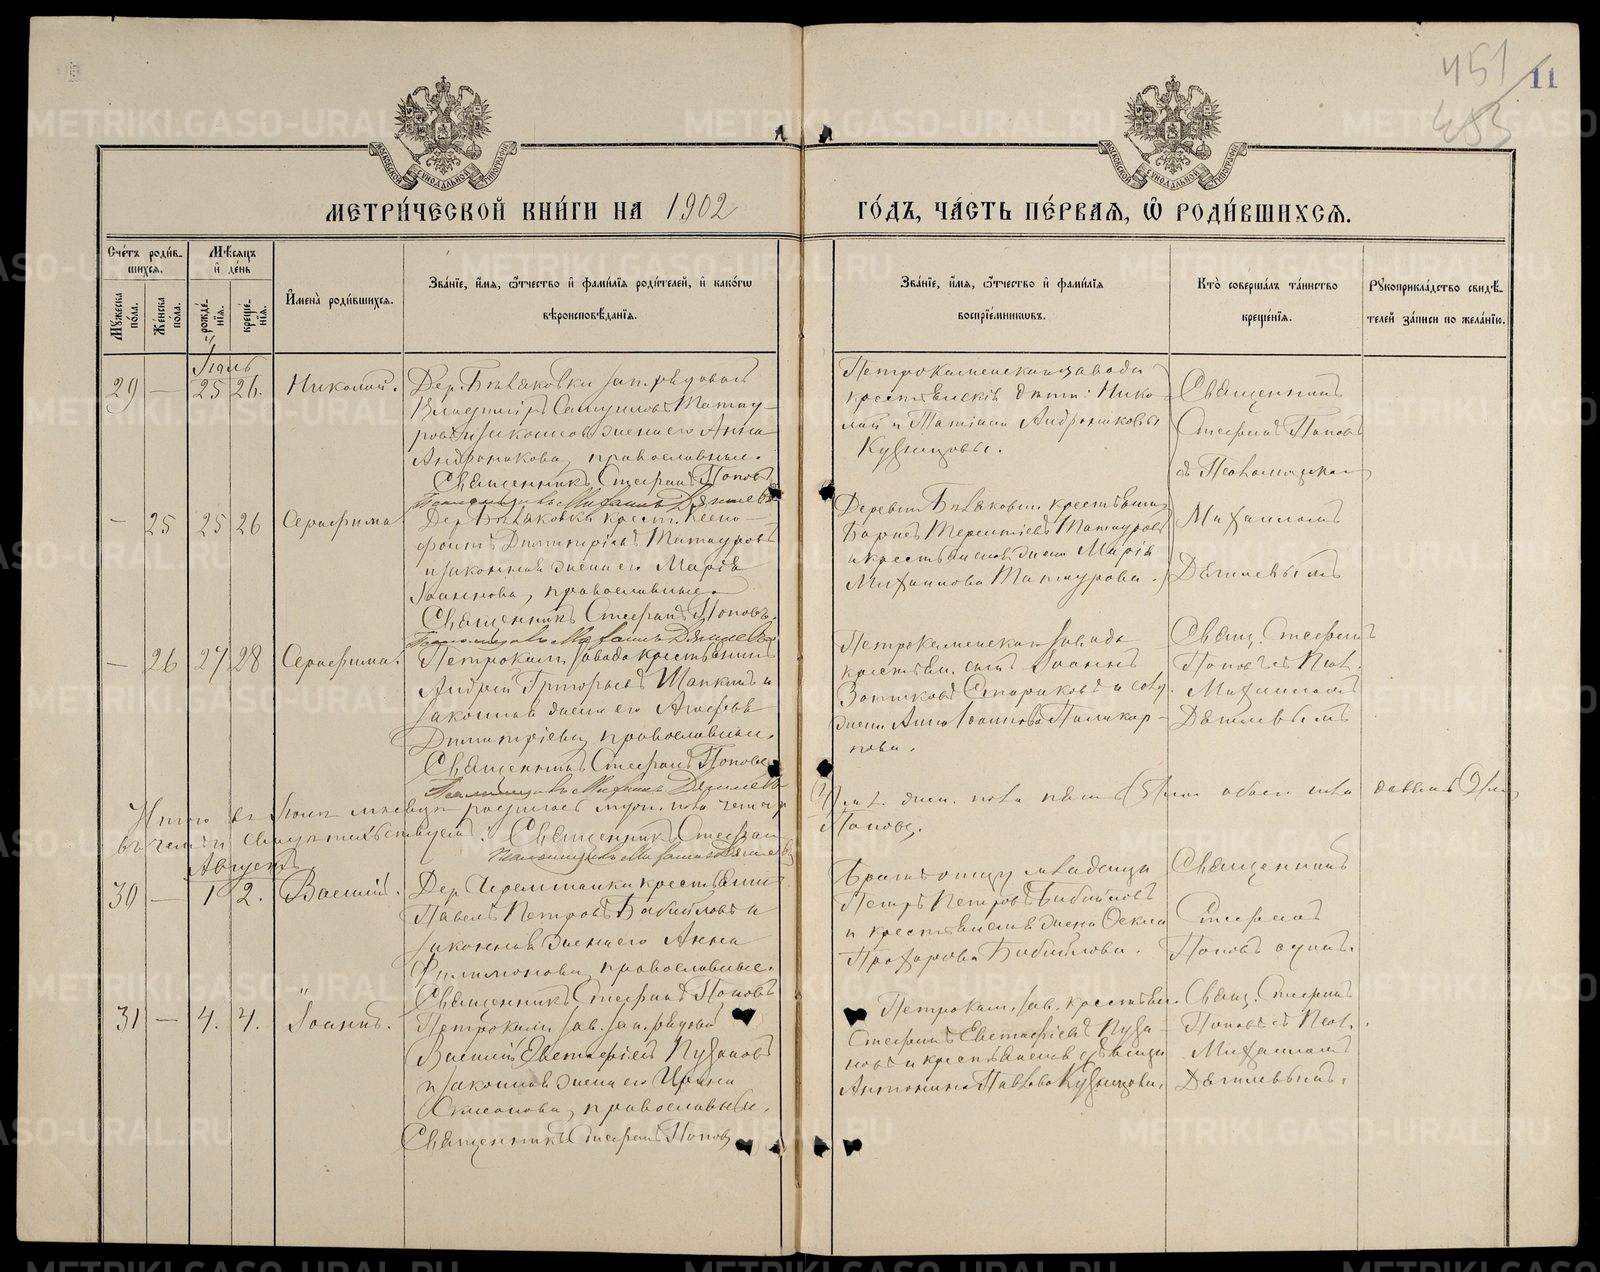 451
11
453
МОСКОВСКОЙ СѴНОДАЛЬНОЙ ТИПОГРАФІИ
МОСКОВСКОЙ СѴНОДАЛЬНОЙ ТИПОГРАФІИ
МЕТРИ́ЧЕСКОЙ КНИ́ГИ НА 1902
ГО́ДЪ, ЧА́СТЬ ПЕ́РВАЯ, Ѡ҆ РОДИ́ВШИХСЯ.
Сче́тъ роди́в-
шихся.
Мѣ́сяцъ
и҆ де́нь
Му́жеска по́ла.
Же́нска по́ла.
рожде́-
нія.
креще́-
нія.
И҆мена̀ роди́вшихся.
Зва́ніе, и҆́мя, ѻ҆́тчество и҆ фами́лія роди́телей, и҆ како́гѡ
вѣроисповѣ́данія.
Зва́ніе, и҆́мя, ѻ҆́тчество и҆ фами́лія
воспріе́мниковъ.
Кто̀ соверша́лъ та́инство
креще́нія.
Рукоприкла́дство свидѣ́-
телей за́писи по жела́нію.
Іюль
29 — 25 26. Николай.
Дер. Бѣляковки зап. рядовой
Владиміръ Самуиловъ Татау-
ровъ и законная жена его Анна
Андроникова, православные.
Священникъ Стефанъ Поповъ
Псаломщикъ Михаилъ Дягилевъ
Петрокаменскаго завода
крестьянскія дѣти: Нико-
лай и Татіана Андрониковы
Кузнецовы.
Священникъ
Стефанъ Поповъ
съ Псаломщикомъ
— 25 25 26 Серафима
Дер. Бѣляковки крест. Ксено-
фонтъ Димитріевъ Татауровъ
и законная жена его Марія
Іоаннова, православные.
Священникъ Стефанъ Поповъ.
Псаломщикъ Михаилъ Дягилевъ
Деревни Бѣляковки крестьянинъ
Борисъ Терентіевъ Татауровъ
и крестьянская жена Марія
Михаилова Татаурова.
Михаиломъ
Дягилевымъ
— 26 27 28 Серафима.
Петрокам. завода крестьянинъ
Андрей Григорьевъ Шапкинъ и
законная жена его Агафья
Димитріева, православные.
Священникъ Стефанъ Поповъ
Псаломщикъ Михаилъ Дягилевъ
Петрокаменскаго завода
крестьян. сынъ Іоаннъ
Зотиковъ Стариковъ и
жена Анна Іоаннова Поликар-
пова.
Свящ. Стефанъ
Поповъ съ Псал.
Михаиломъ
Дягилевымъ
Итого въ Іюлѣ мѣсяцѣ родилось муж. пола
пола
Священникъ Стефанъ
Поповъ.
Псаломщикъ Михаилъ Дягилевъ
Августъ
30 — 1 2. Василій.
Дер. Черемшанки крестьянинъ
Павелъ Петровъ Бабайловъ и
законная жена его Анна
Филимонова, православные.
Священникъ Стефанъ Поповъ
Петръ Петровъ Бабайловъ
и крестьянская жена Фекла
Прохорова Бабайлова.
Священникъ
Стефанъ
Поповъ одинъ.
31 — 4. 4. Іоаннъ.
Петрокам. зав. зап. рядовой
Василій Евстафіевъ Пузановъ
и законная жена его Ирина
православные.
Священникъ Стефанъ Поповъ
Петрокам. зав. крестьян.
Стефанъ Евстафіевъ Пуза-
новъ и крестьянская дѣвица
Антонина Павлова Кузнецова.
Свящ. Стефанъ
Поповъ съ Псал.
Михаиломъ
Дягилевымъ.
METRIKI.GASO-URAL.RU